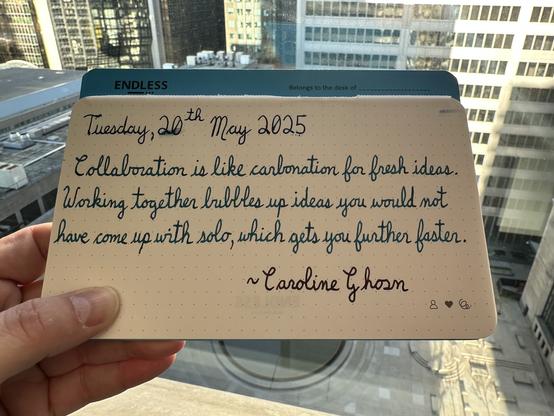 ENDLESS
Belongs to the desk of
Tuesday, 20th May 2025
Collaboration is like carbonation for fresh ideas.
Working together bubbles up ideas you would not
have come up with solo, which gets you further faster.
~Caroline Ghosn